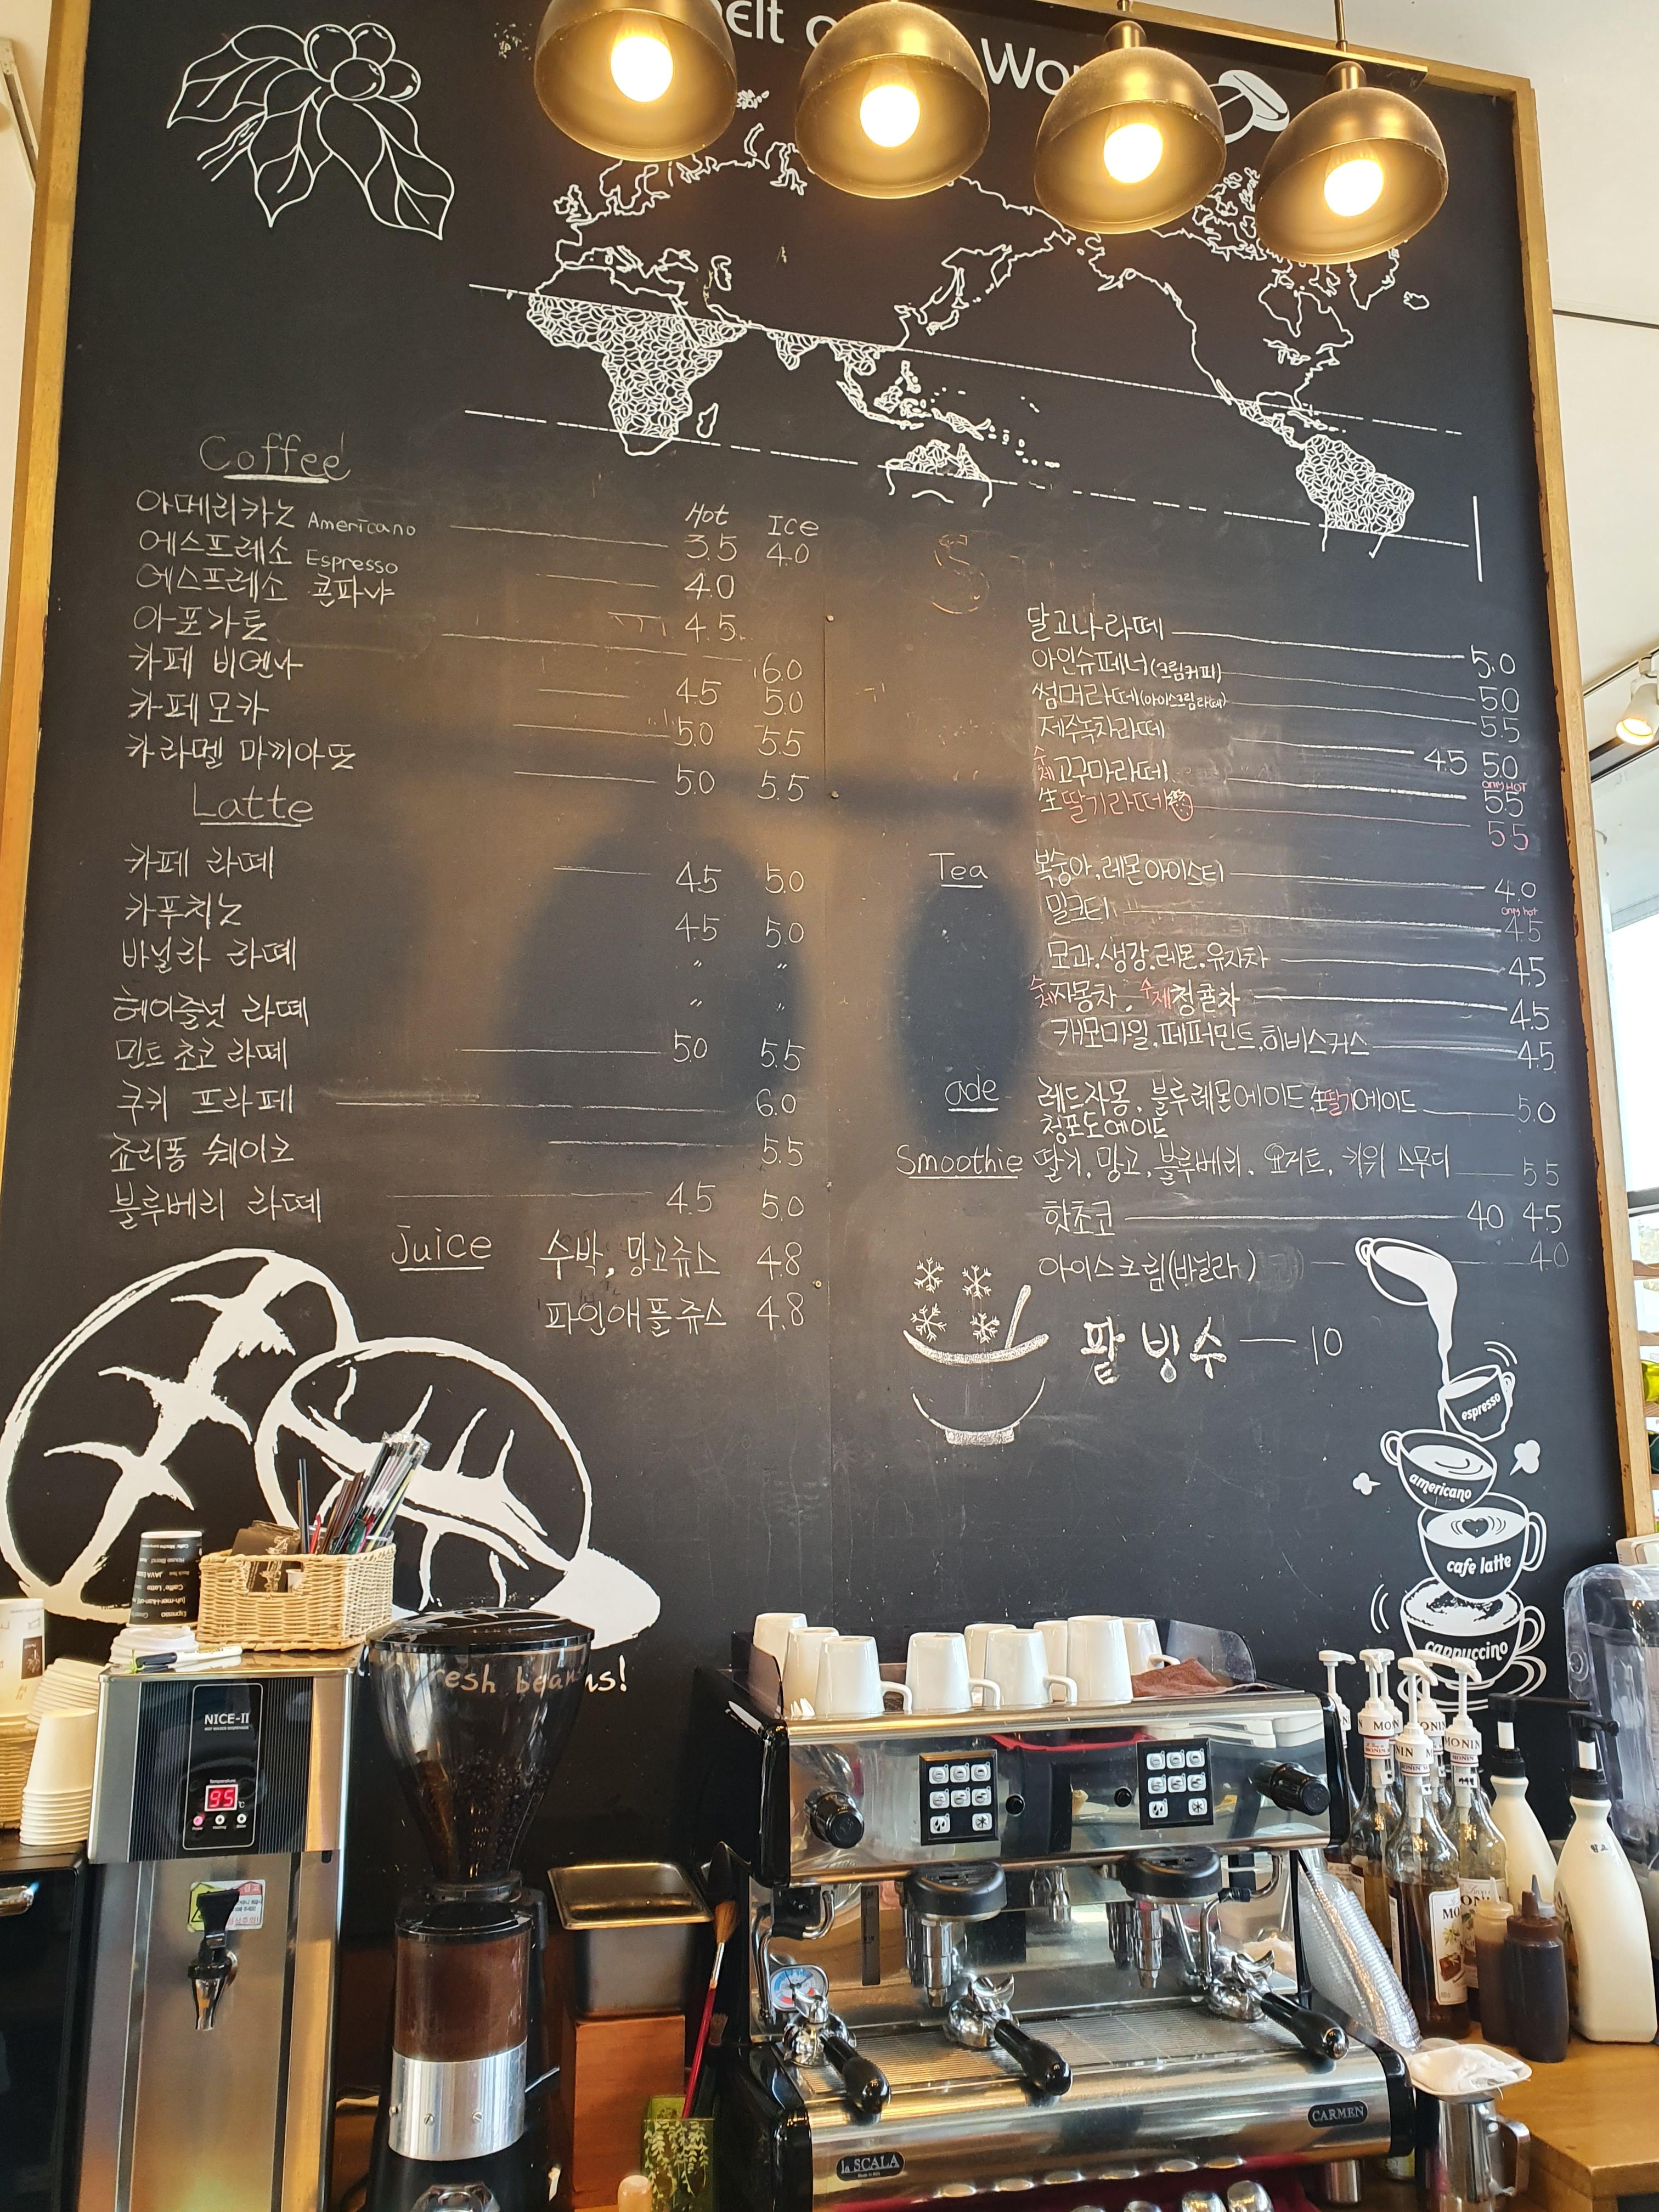 elt
Wor
Coffee
Hot Ice
아메리카노 Americano 3.5 4.0
에스프레소 Espresso
에스프레소 콘파냐 4.0
아포가토 4.5
6.0
카페 비엔나 4.5 5.0
카페모카 5.0 5.5
카라멜 마끼아또 5.0 5.5
Latte
카페 라떼 4.5 5.0
카푸치노 4.5 5.0
바닐라 라떼 〃 〃
헤이즐넛 라떼 〃 〃
민트초코 라떼 5.0 5.5
쿠키 프라페 6.0
죠리퐁 쉐이크 5.5
블루베리 라떼 4.5 5.0
Juice 수박, 망고쥬스 4.8
파인애플쥬스 4.8
S
달고나라떼 5.0
아인슈페너(크림커피) 5.0
썸머라떼(아이스크림라떼) 5.5
제주녹차라떼 4.5 5.0
수제고구마라떼 only HOT 5.5
生딸기라떼 5.5
Tea 복숭아, 레몬아이스티 4.0
밀크티 only hot 4.5
모과, 생강, 레몬, 유자차 4.5
수제자몽차, 수제청귤차 4.5
캐모마일, 페퍼민트, 히비스커스 4.5
ade 레드자몽, 블루레몬에이드, 生딸기에이드 5.0
청포도에이드
Smoothie 딸기, 망고, 블루베리, 요거트, 키위 스무디 5.5
핫초코 4.0 4.5
아이스크림(바닐라) 4.0
팥빙수 10
espresso
americano
cafe latte
cappuccino
resh beans!
NICE-II
95
MONIN
MONIN
la SCALA
CARMEN